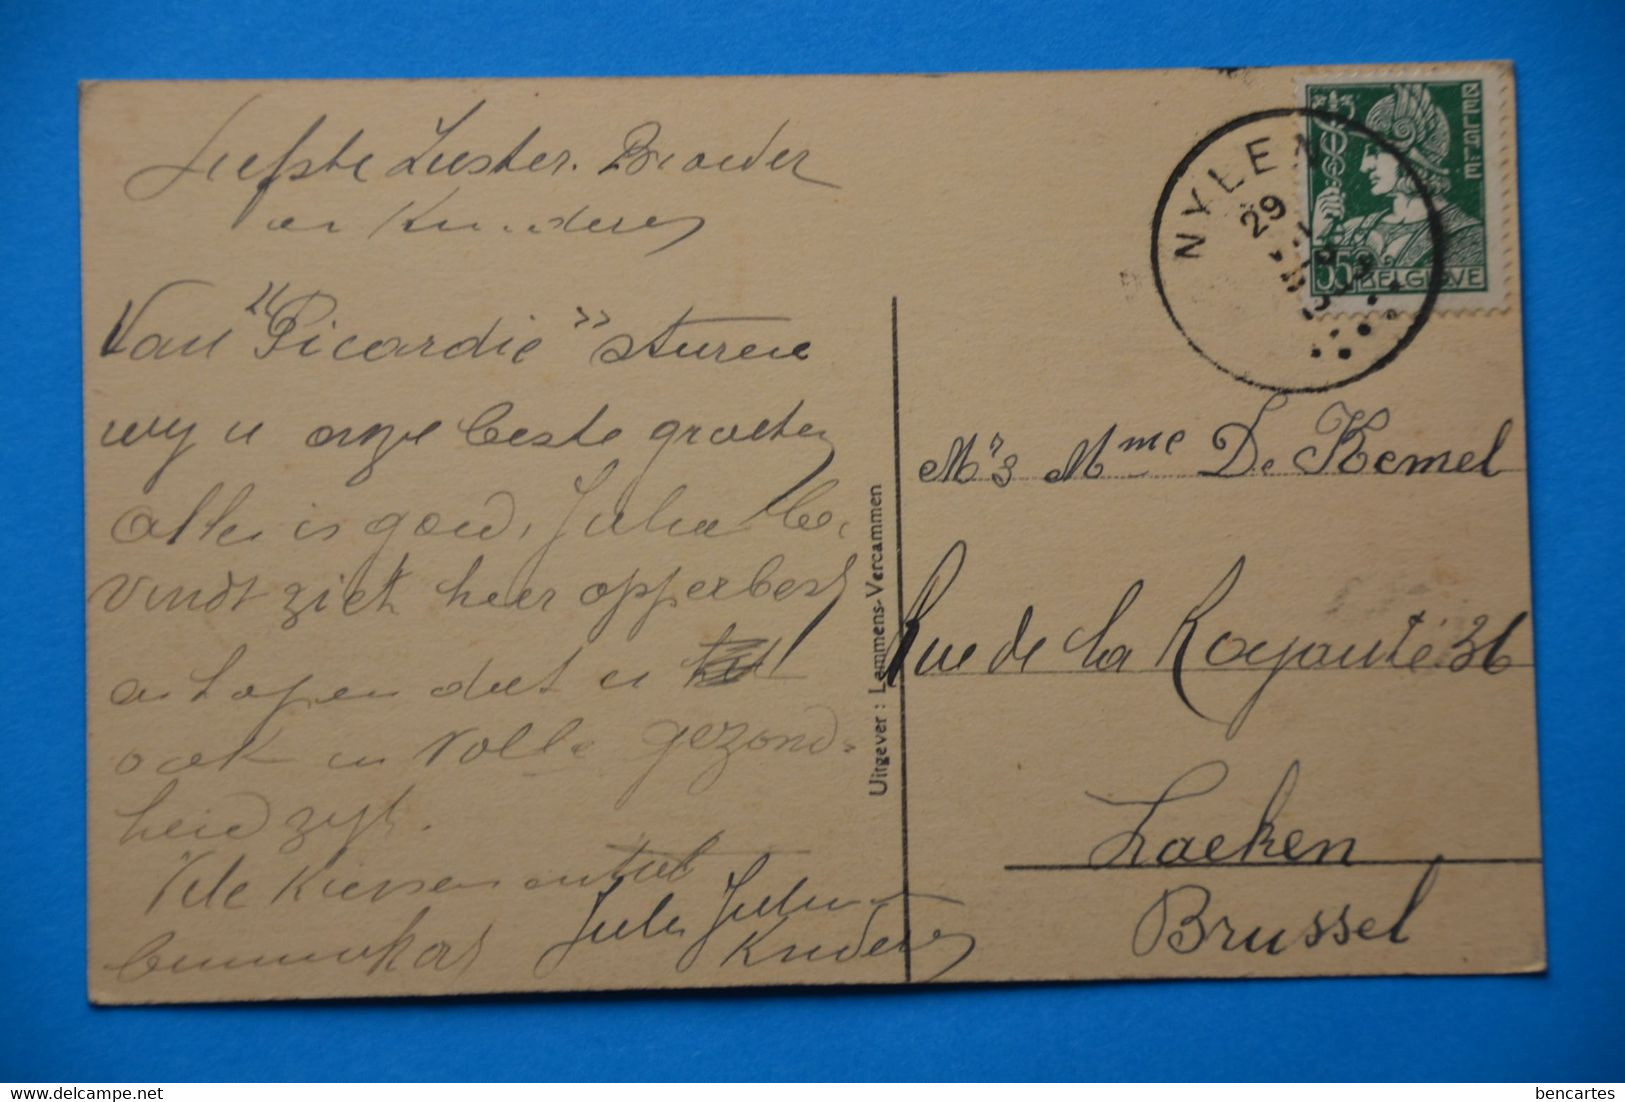 Liefste Zuster. Broeder
en Kinderen
Van "Picardie" sturen
wy u onze beste groeten
alles is goed, Julia be.
vindt zich heer opperbest
en hopen dat u
ook in volle gezond-
heid zyt.
Vele Kussen
Jules Julia
Kinderen
Uitgever : Lemmens-Vercammen
NYLEN
29
BELGIË
35c
BELGIQUE
Mrs Mme De Kemel
Rue de la Royauté 36
Laeken
Brussel
bencartes